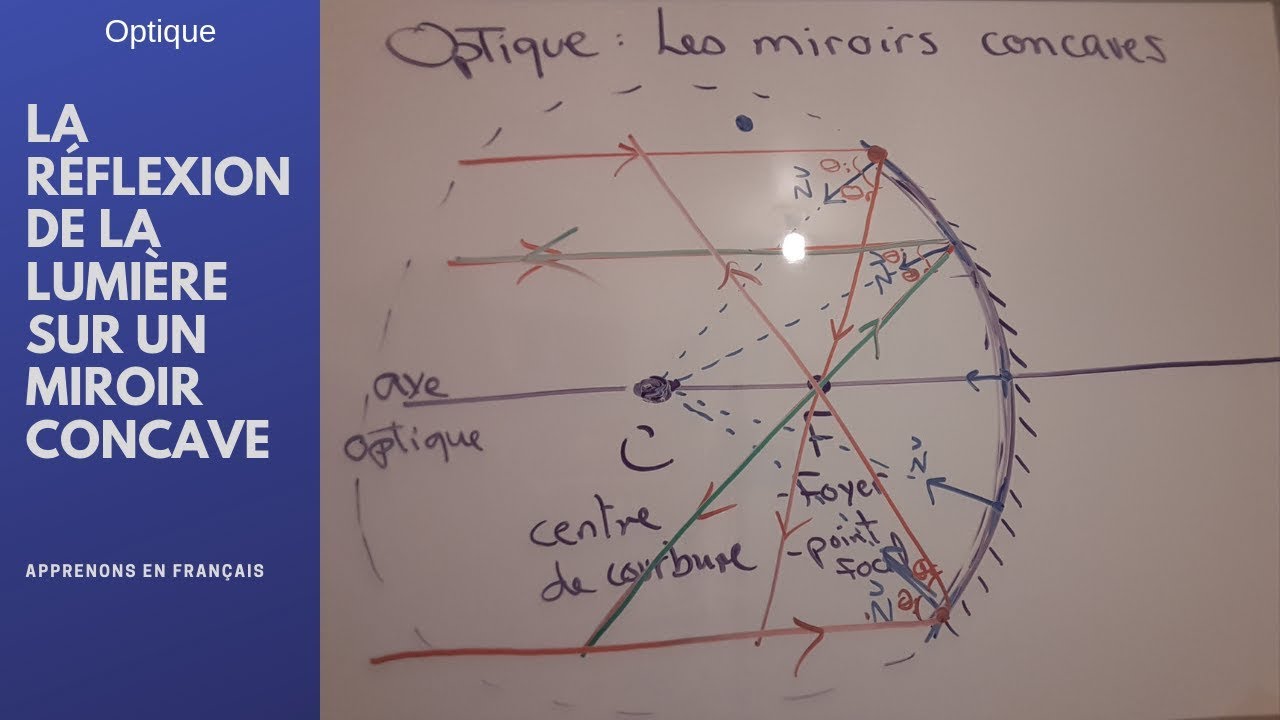 Optique
LA
RÉFLEXION
DE LA
LUMIÈRE
SUR UN
MIROIR
CONCAVE
APPRENONS EN FRANÇAIS
Optique : Les miroirs concaves
θi
θr
N
N
θ
θ
axe
optique
C
F
centre
de courbure
- Foyer
- point
focal
N
N
θ
θ